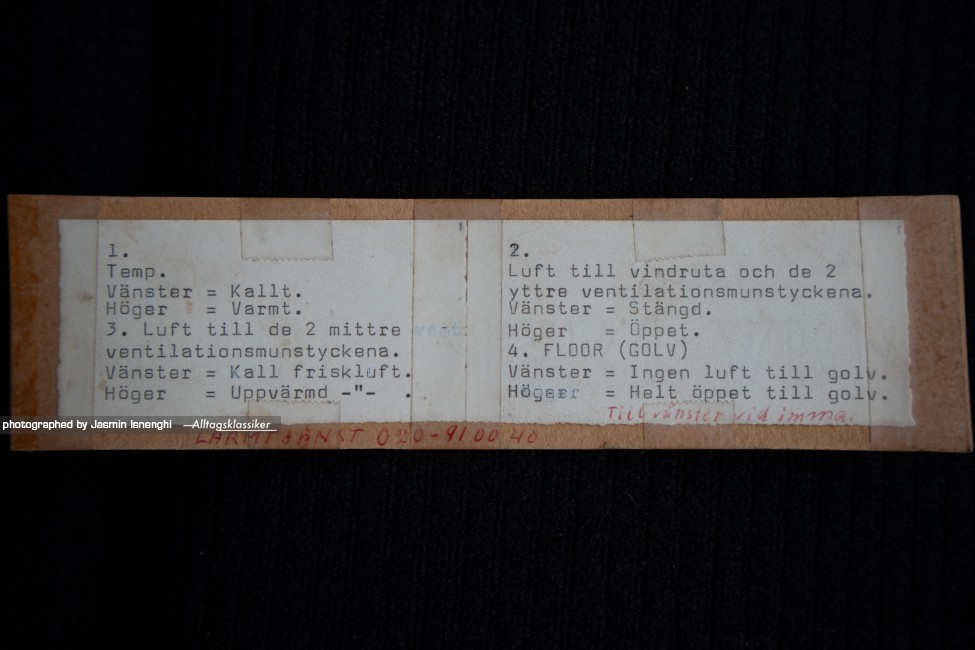 1.
Temp.
Vänster = Kallt.
Höger   = Varmt.
3. Luft till de 2 mittre
ventilationsmunstyckena.
Vänster = Kall friskluft.
Höger   = Uppvärmd -"-  .
2.
Luft till vindruta och de 2
yttre ventilationsmunstyckena.
Vänster = Stängd.
Höger   = Öppet.
4. FLOOR (GOLV)
Vänster = Ingen luft till golv.
Höger = Helt öppet till golv.
Till vänster vid imma.
LARMTJÄNST 020-91 00 40
photographed by Jasmin Isnenghi —Alltagsklassiker